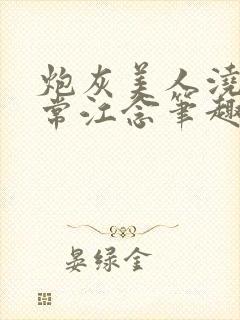 炮灰美人浇
常江念笔趣
晏绿金